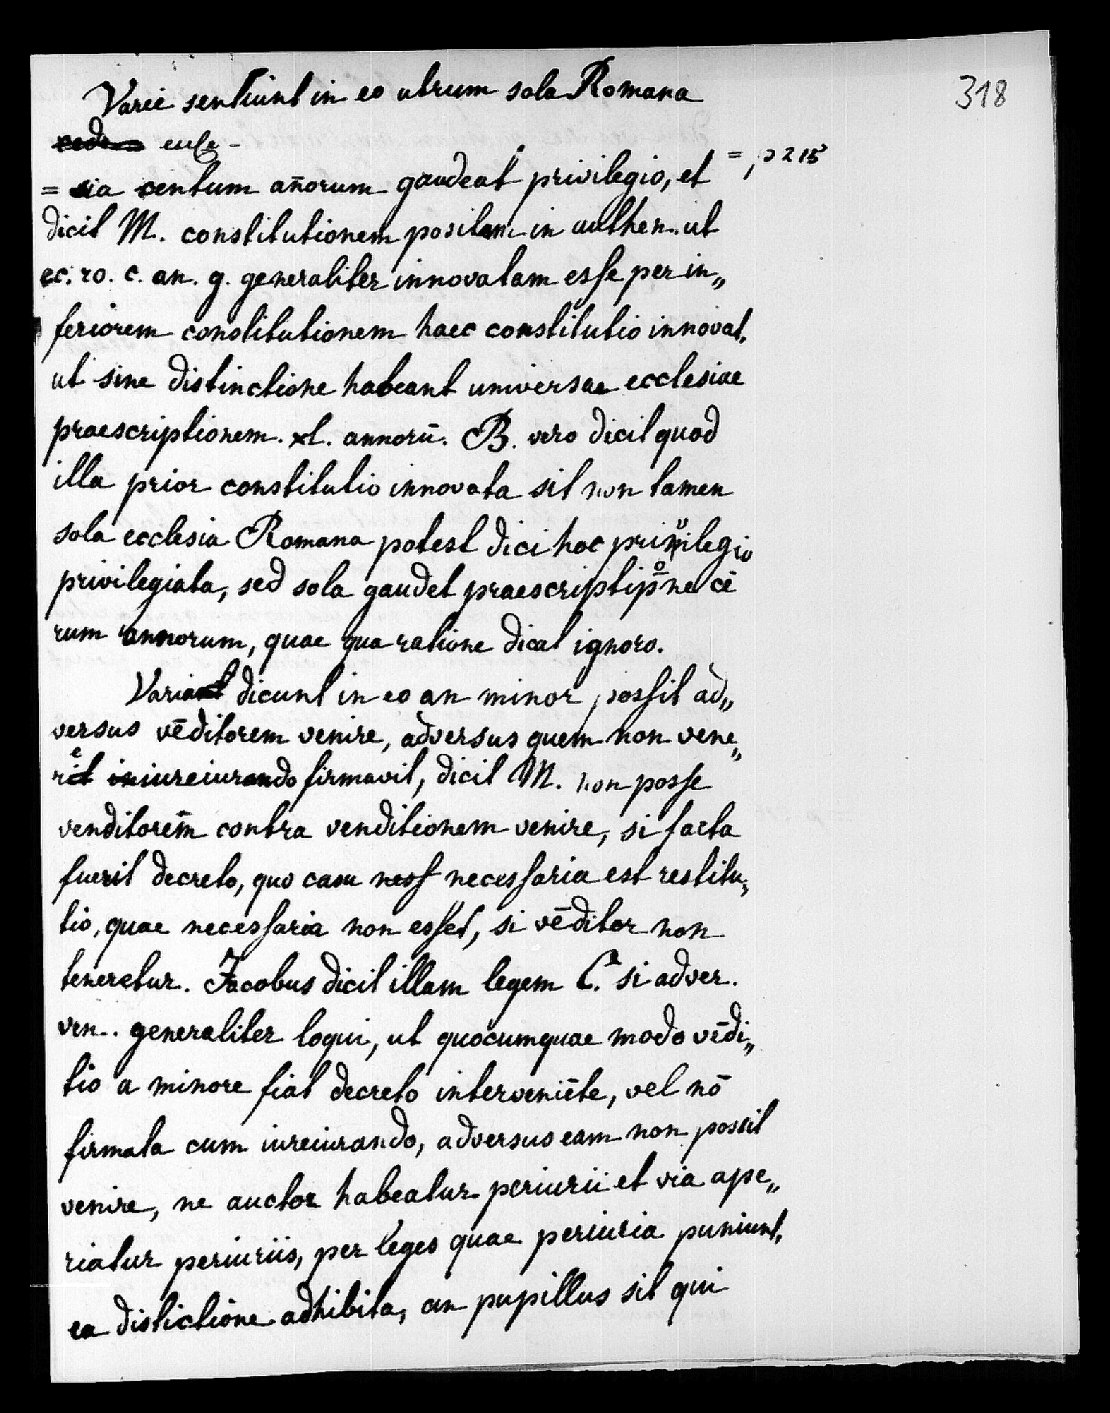 318
Varie sentiunt in eo utrum sola Romana
eccle-
= sia centum añorum gaudeat privilegio, et =, p 215
dicit M. constitutionem positam in authen. ut
ec. ro. c. an. g. generaliter innovatam esse per in„
feriorem constitutionem haec constitutio innovat,
ut sine distinctione habeant universae ecclesiae
praescriptionem. xl. annorū. B. vero dicit quod
illa prior constitutio innovata sit non tamen
sola ecclesia Romana potest dici hoc privilegio
privilegiata, sed sola gaudet praescriptione cē
rum annorum, quae qua ratione dicat ignoro.
Varia dicunt in eo an minor possit ad„
versus vēditorem venire, adversus quem non vene„
rit iureiurando firmavit, dicit M. non posse
venditorem contra venditionem venire, si facta
fuerit decreto, quo casu nesf necessaria est restitu„
tio, quae necessaria non esset, si vēditor non
teneretur. Jacobus dicit illam legem C. si adver.
ven.. generaliter loqui, ut quocumquae modo vēdi„
tio a minore fiat decreto interveniēte, vel nō
firmata cum iureiurando, adversus eam non possit
venire, ne auctor habeatur periurii et via ape„
riatur periuriis, per leges quae periuria puniunt,
ea distictione adhibita, an pupillus sit qui